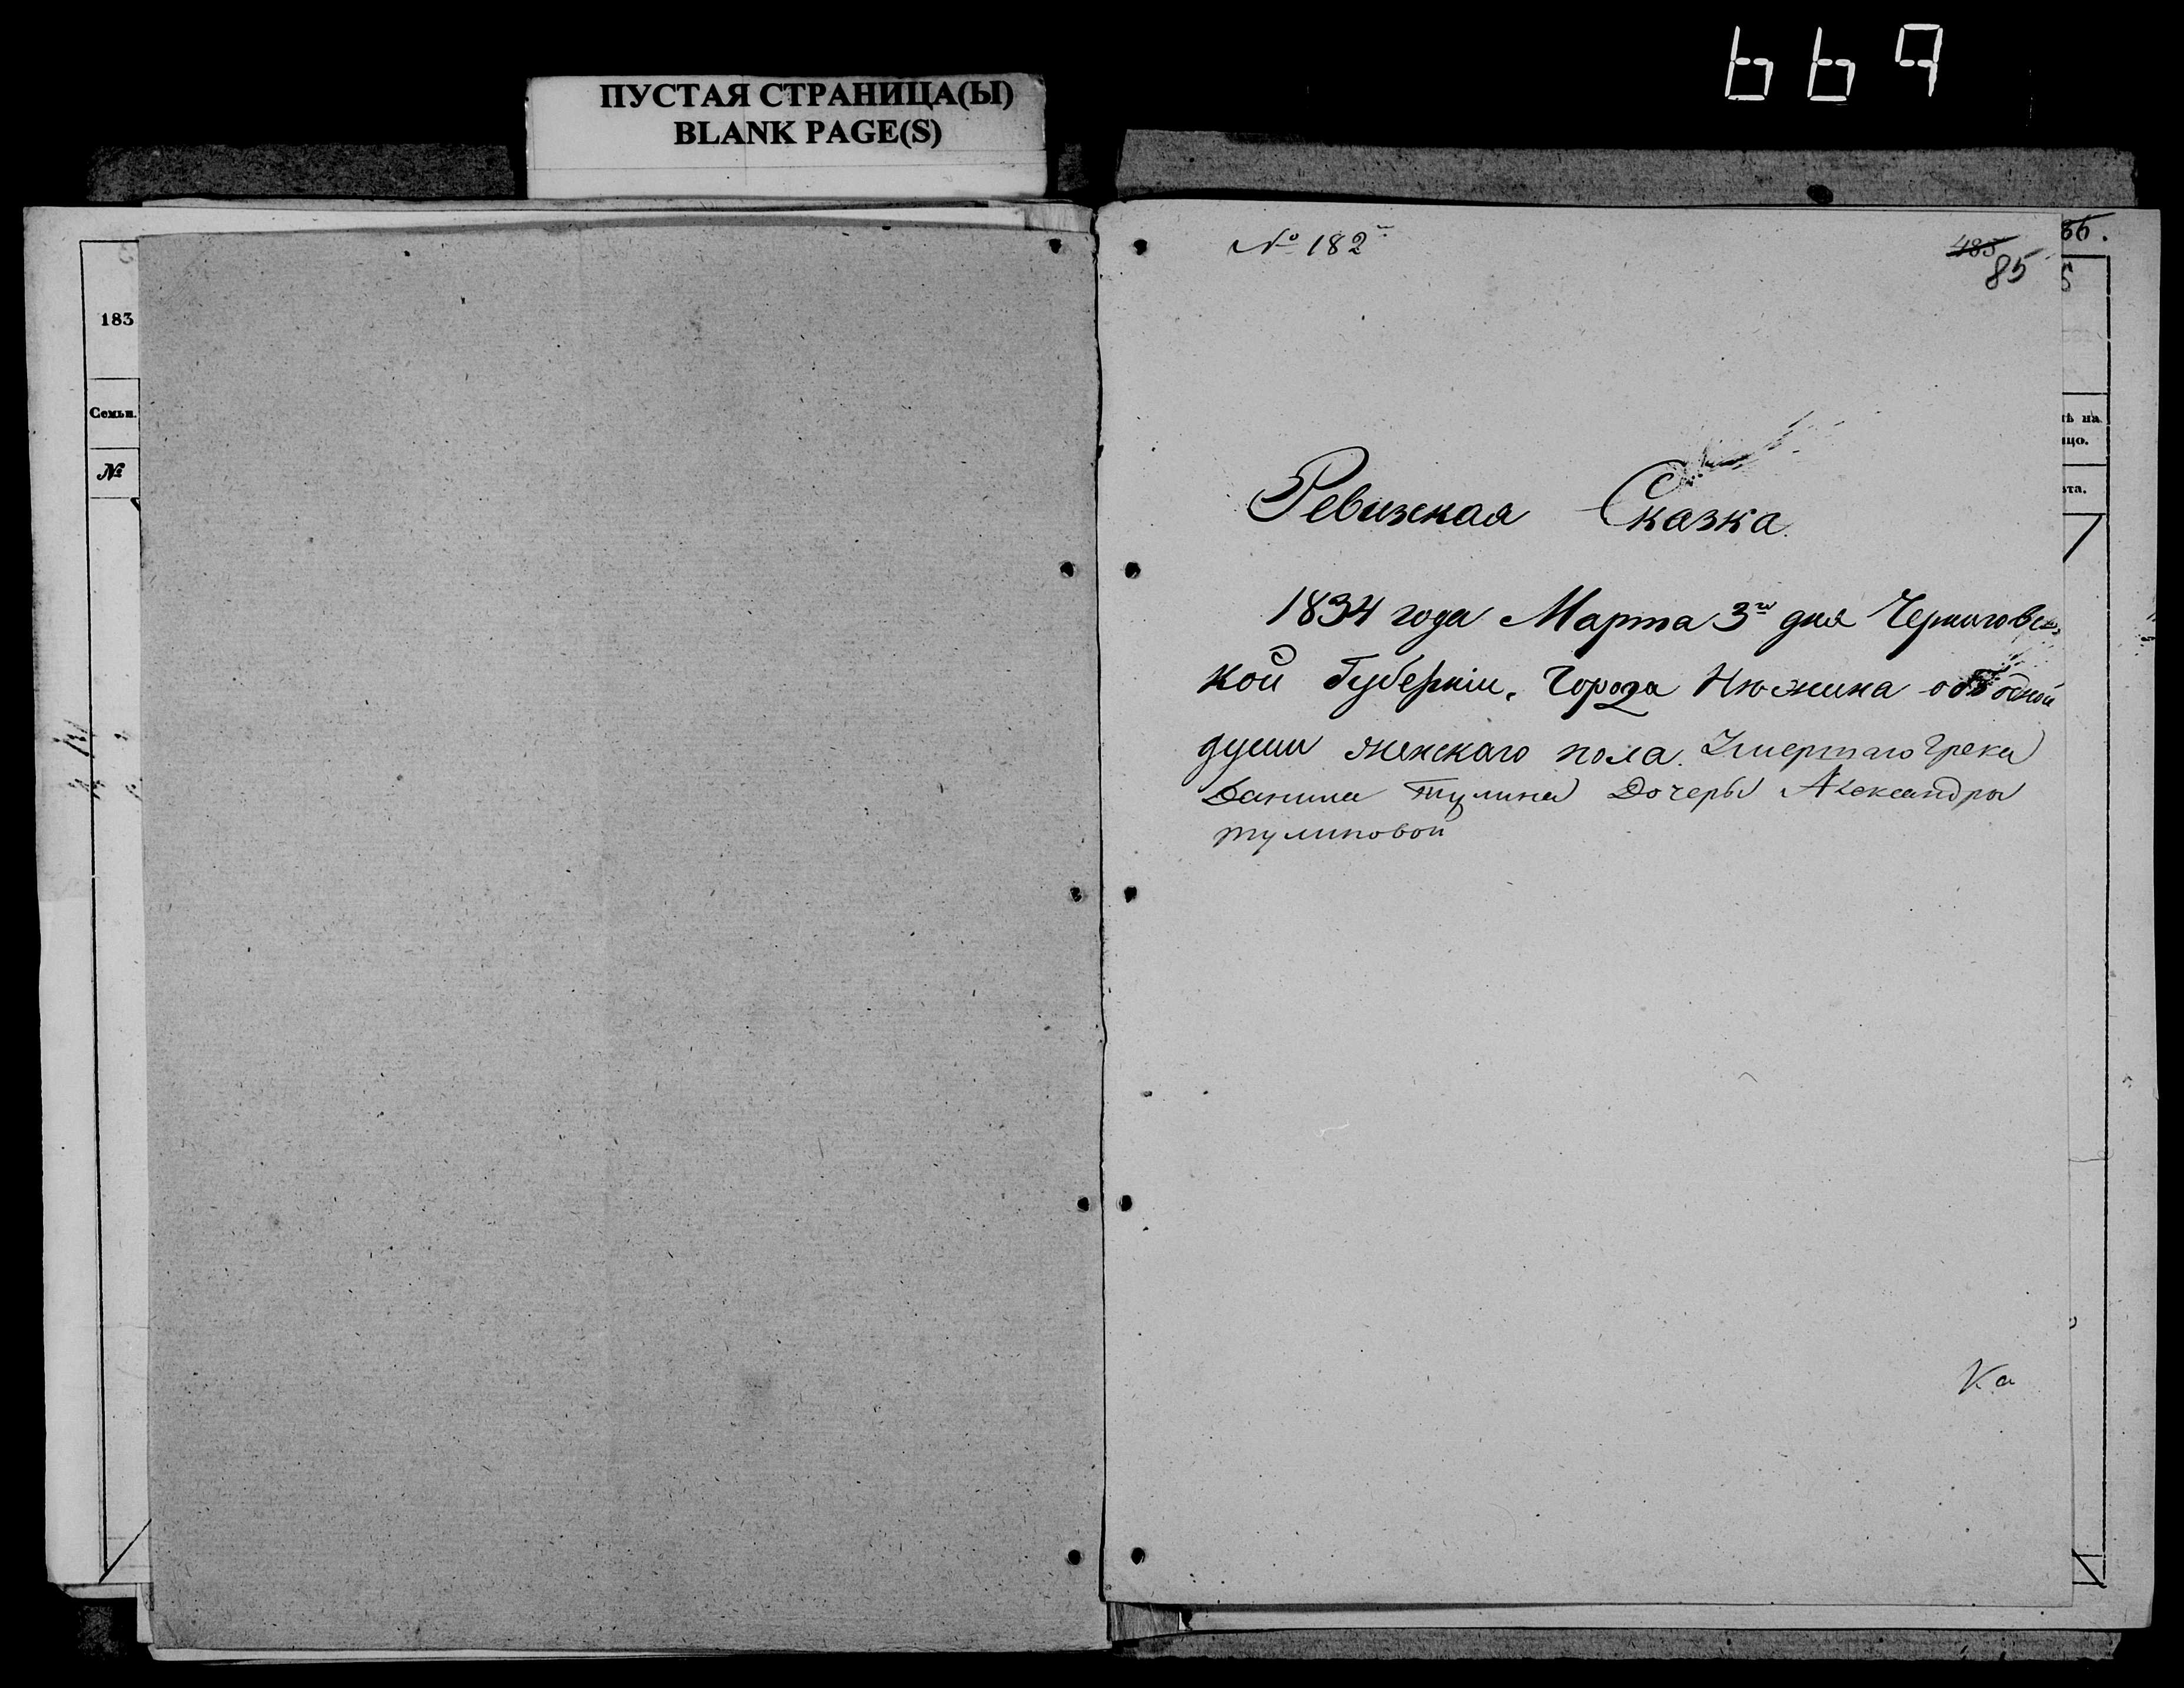 669
ПУСТАЯ СТРАНИЦА(Ы)
BLANK PAGE(S)
183
Семьи.
№
№ 182
485
85
86.
ѣ на
цо.
ѣта.
Ревизская Сказка.
1834 года Марта 3го дня Черниговс-
кой Губерніи, Города Нѣжина объ одной
души женскаго пола. Умершаго Грека
Данила Тулина Дочеры Александры
тулиновой
Ка